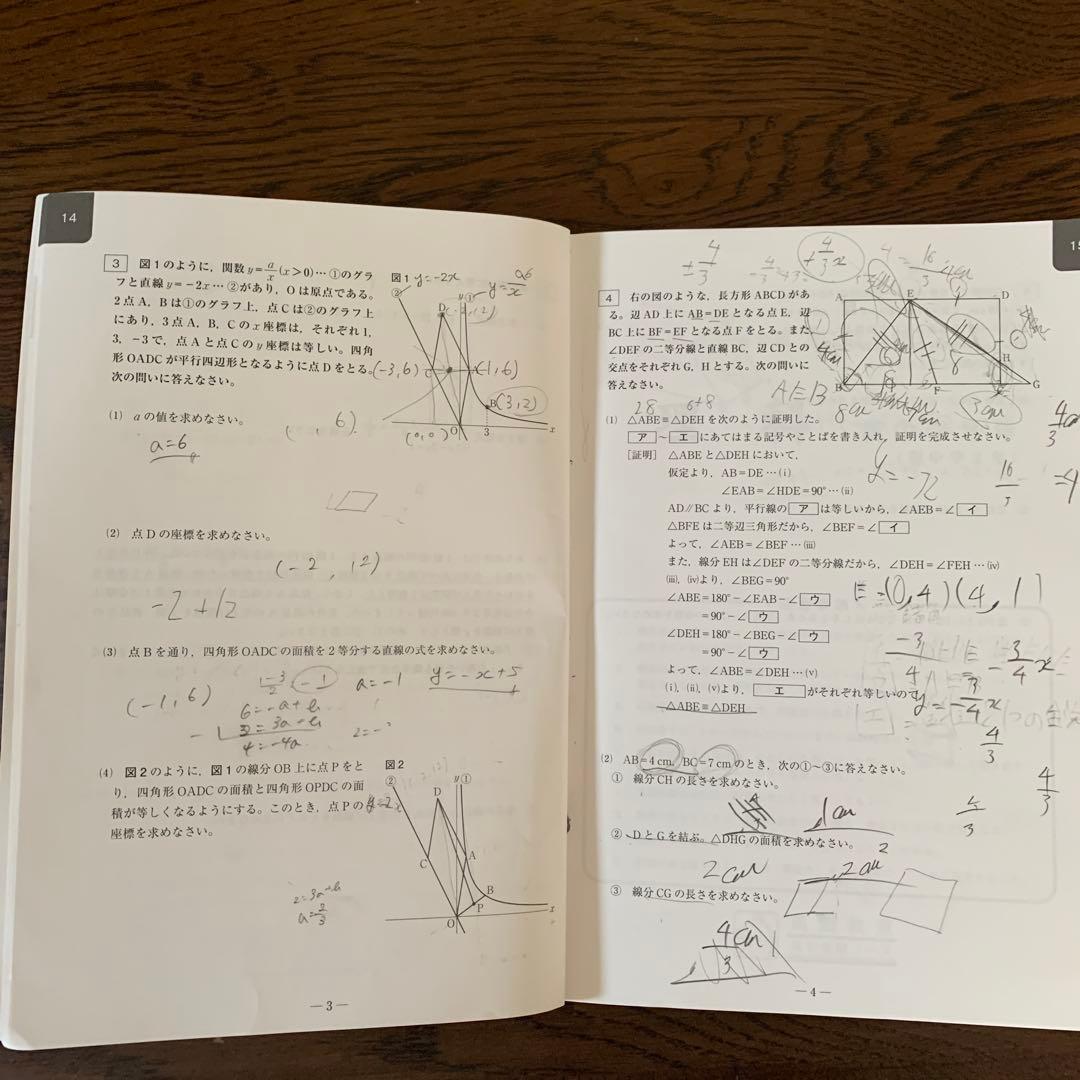 14
3 図1のように，関数y=a/x(x＞0)…①のグラ
フと直線y=−2x…②があり，Oは原点である。
2点A，Bは①のグラフ上，点Cは②のグラフ上
にあり，3点A，B，Cのx座標は，それぞれ1，
3，−3で，点Aと点Cのy座標は等しい。四角
形OADCが平行四辺形となるように点Dをとる。
次の問いに答えなさい。
図1 y=-2x
② y ①
D
(-3,6) C A (-1,6)
B (3,2)
(0,0) O 3 x
(1) aの値を求めなさい。
a=6
(2) 点Dの座標を求めなさい。
(-2, 12)
-2+12
(3) 点Bを通り，四角形OADCの面積を2等分する直線の式を求めなさい。
(-1,6) 1-3/2 -1 a=-1 y=-x+5
4=-4a
(4) 図2のように，図1の線分OB上に点Pをと
り，四角形OADCの面積と四角形OPDCの面
積が等しくなるようにする。このとき，点Pの
座標を求めなさい。
図2
② y ①
D
C A
B
O P x
a=2/3
―3―
15
4/3
±4/3
+4/3x
4 右の図のような，長方形ABCDがあ
る。辺AD上にAB=DEとなる点E，辺
BC上にBF=EFとなる点Fをとる。また，
∠DEFの二等分線と直線BC，辺CDとの
交点をそれぞれG，Hとする。次の問いに
答えなさい。
A E D
H
B F G
AEB
8cm
3cm
28 6+8
(1) △ABE≡△DEHを次のように証明した。
ア～エにあてはまる記号やことばを書き入れ，証明を完成させなさい。
[証明] △ABEと△DEHにおいて，
仮定より，AB=DE…(i)
∠EAB=∠HDE=90°…(ii)
AD∥BCより，平行線のアは等しいから，∠AEB=∠イ
△BFEは二等辺三角形だから，∠BEF=∠イ
よって，∠AEB=∠BEF…(iii)
また，線分EHは∠DEFの二等分線だから，∠DEH=∠FEH…(iv)
(iii)，(iv)より，∠BEG=90°
∠ABE=180°−∠EAB−∠ウ
=90°−∠ウ
∠DEH=180°−∠BEG−∠ウ
=90°−∠ウ
よって，∠ABE=∠DEH…(v)
(i)，(ii)，(v)より，エがそれぞれ等しいので，
△ABE≡△DEH
E=(0,4)(4,1)
-3/4
-3/4x
y=-3/4x
4/3
4/3
(2) AB=4cm，BC=7cmのとき，次の①～③に答えなさい。
① 線分CHの長さを求めなさい。
1cm
② DとGを結ぶ。△DHGの面積を求めなさい。
2
2cm 2cm
③ 線分CGの長さを求めなさい。
4/3cm
―4―